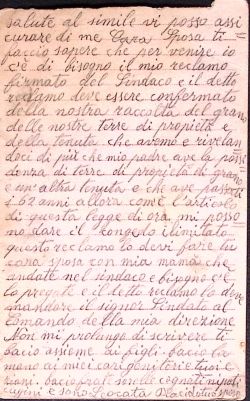 salute al simile vi posso assi
curare di me Cara Sposa ti
faccio sapere che per venire io
c'è di bisogno il mio reclamo
firmato del Sindaco e il detto
reclamo deve essere confermato
della nostra raccolta del grano
delle nostre terre di propietà e
della tenuta che avemo e rivelan
doci di più che mio padre ave la posse
denza di terre di propietà di grano
e un'altra tenuta e che ave passato
i 62 anni allora come l'articolo
di questa legge di ora mi posso
no dare il congedo illimitato
questo reclamo lo devi fare tu
cara sposa con mia mamà che
andate nel sindaco e bisogno c'è
lo pregate e il detto reclamo lo deve
mandare il signor Sindato al
comando della mia direzione
Non mi prolungo di scrivere ti
bacio assieme ai figli bacio la
mano ai miei cari genitori e tuoi e
ziani. bacio frate sorelle cognati nipoti
cugini e sono Locata Placido tuo sposo